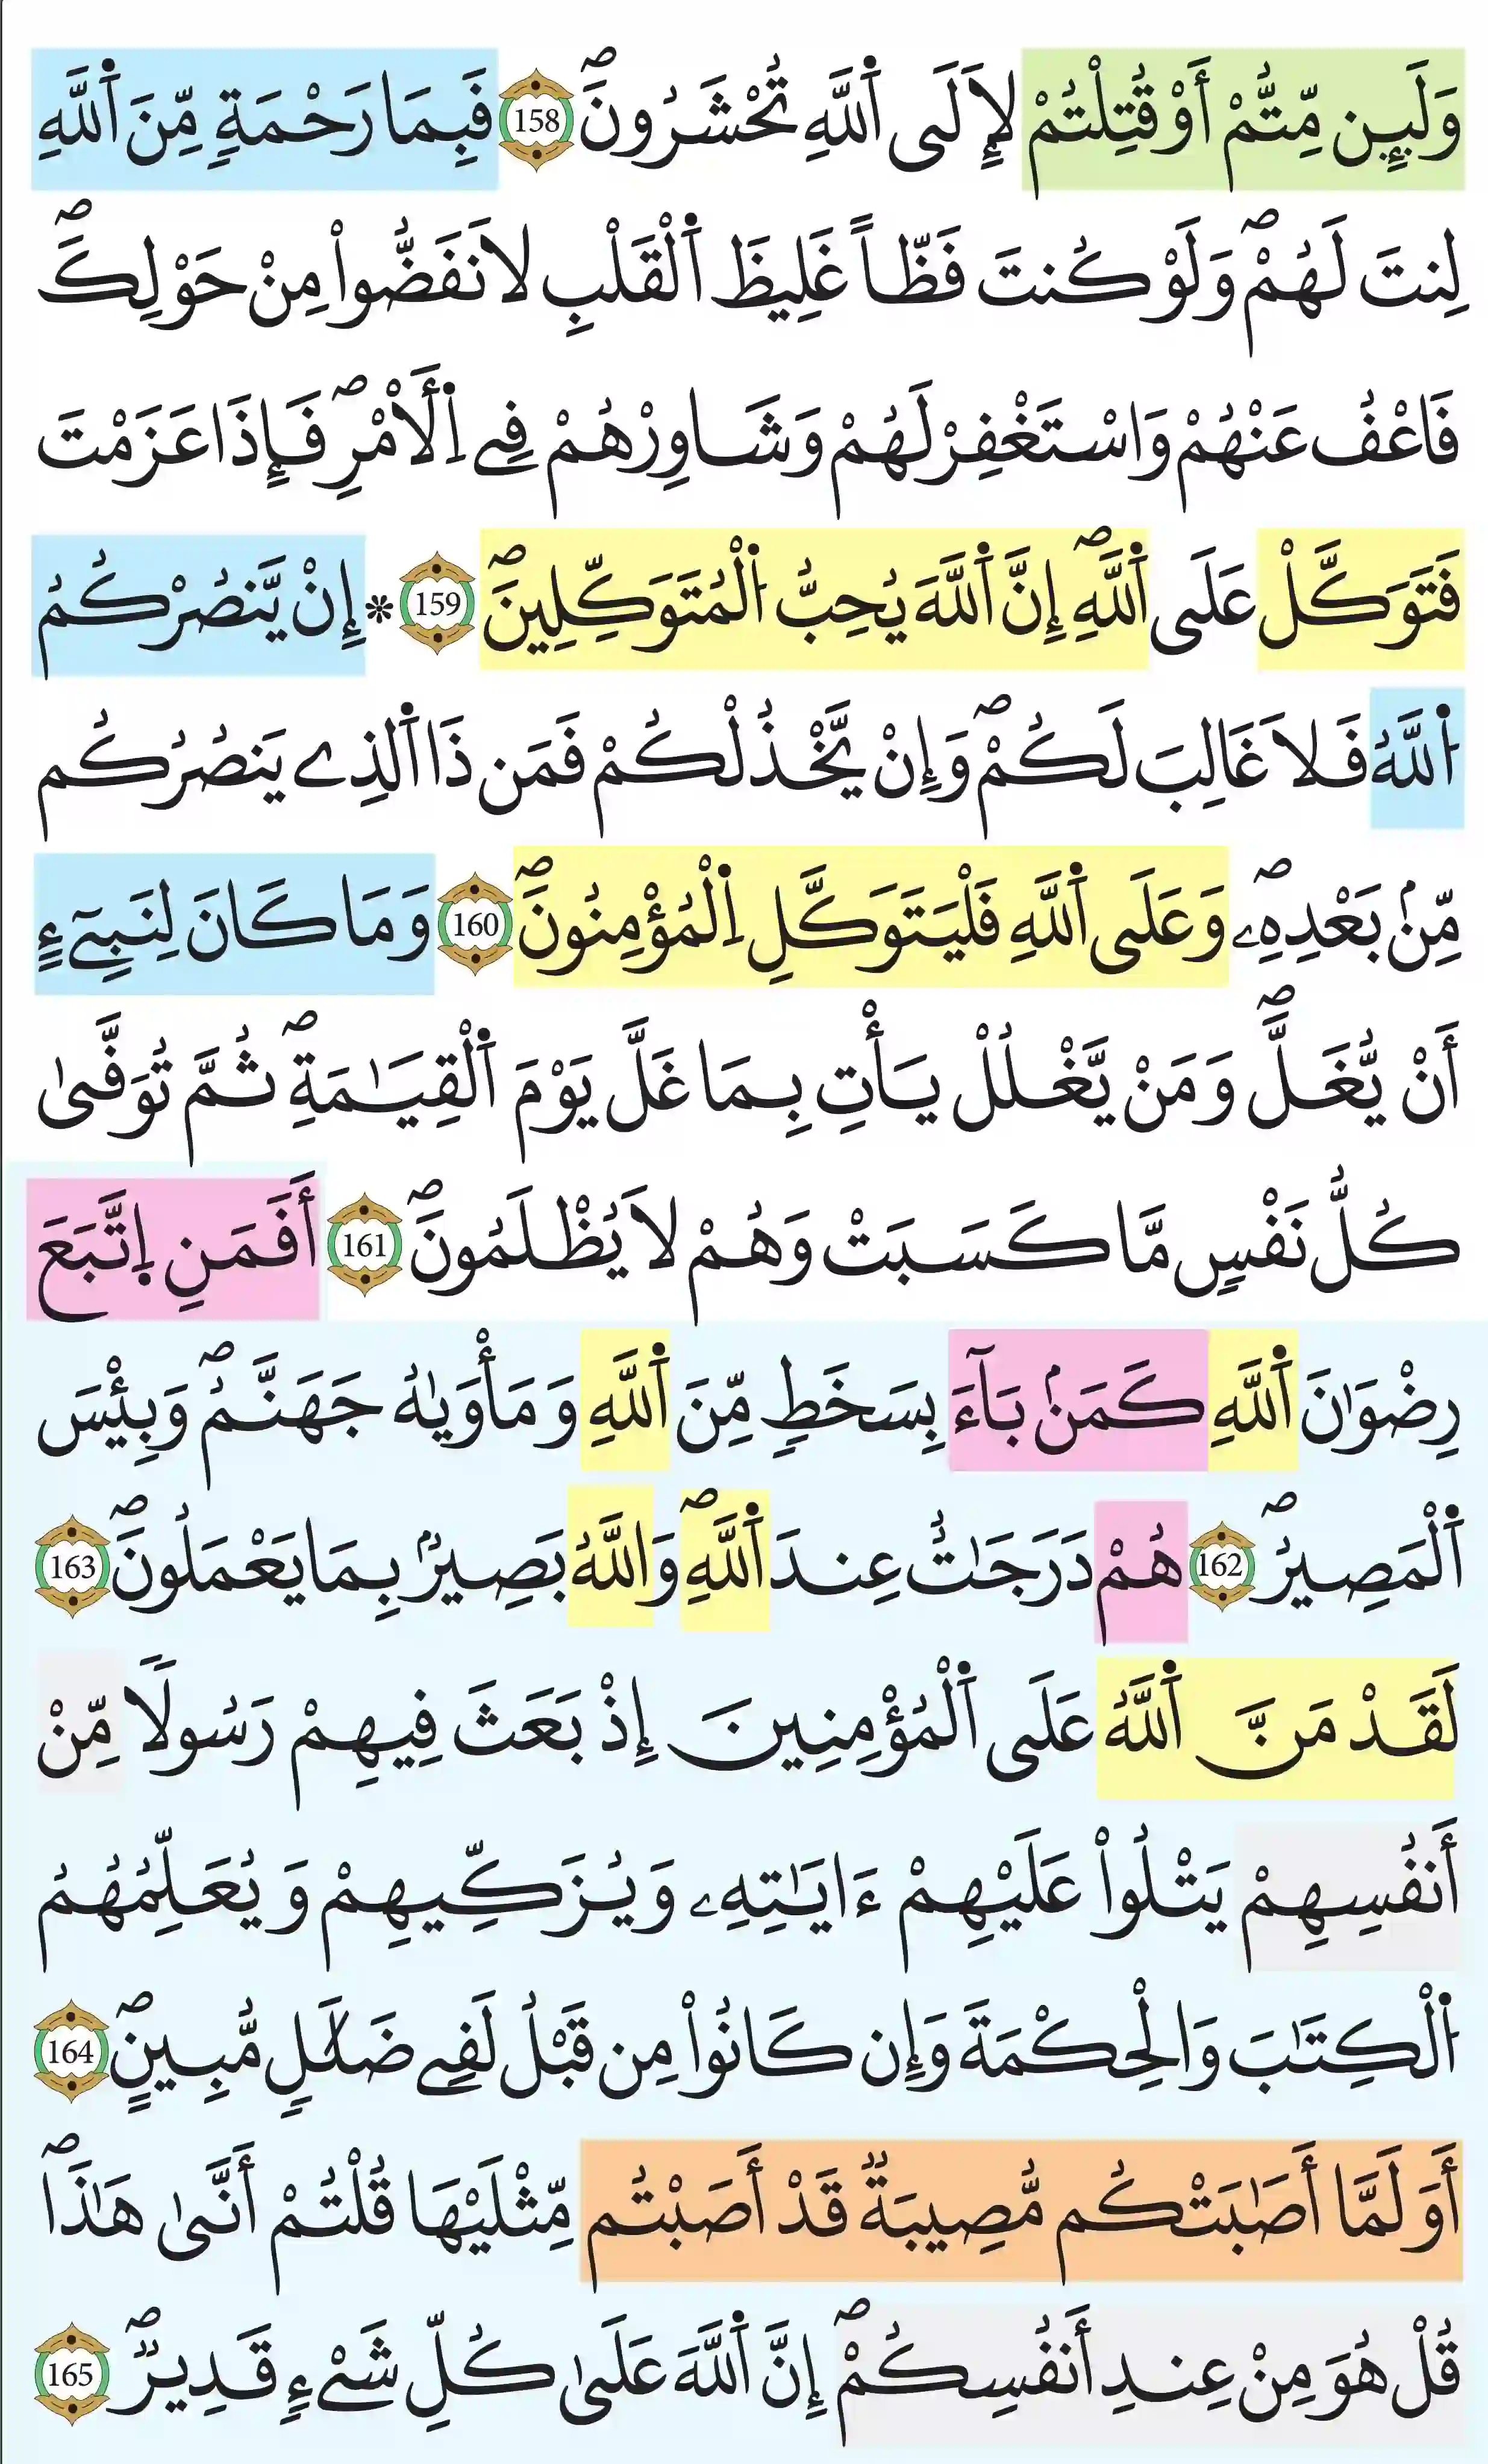 وَلَئِن مِّتُّمْ أَوْ قُتِلْتُمْ لَإِلَى اَ۬للَّهِ تُحْشَرُونَۖ 158 فَبِمَا رَحْمَةٍ مِّنَ اَ۬للَّهِ
لِنتَ لَهُمْۖ وَلَوْ كُنتَ فَظّاً غَلِيظَ اَ۬لْقَلْبِ لَانفَضُّواْ مِنْ حَوْلِكَۖ
فَاعْفُ عَنْهُمْ وَاسْتَغْفِرْ لَهُمْ وَشَاوِرْهُمْ فِے اِ۬لْأَمْرِۖ فَإِذَا عَزَمْتَ
فَتَوَكَّلْ عَلَى اَ۬للَّهِۖ إِنَّ اَ۬للَّهَ يُحِبُّ اُ۬لْمُتَوَكِّلِينَۖ 159 * إِنْ يَّنصُرْكُمُ
اُ۬للَّهُ فَلَا غَالِبَ لَكُمْۖ وَإِنْ يَّخْذُلْكُمْ فَمَن ذَا اَ۬لذِے يَنصُرُكُم
مِّنۢ بَعْدِهِۦۖ وَعَلَى اَ۬للَّهِ فَلْيَتَوَكَّلِ اِ۬لْمُؤْمِنُونَۖ 160 وَمَا كَانَ لِنَبِےٓءٍ
أَنْ يُّغَلَّۖ وَمَنْ يَّغْلُلْ يَأْتِ بِمَا غَلَّ يَوْمَ اَ۬لْقِيَٰمَةِۖ ثُمَّ تُوَفَّىٰ
كُلُّ نَفْسٍ مَّا كَسَبَتْ وَهُمْ لَا يُظْلَمُونَۖ 161 أَفَمَنِ اِ۪تَّبَعَ
رِضْوَٰنَ اَ۬للَّهِ كَمَنۢ بَآءَ بِسَخَطٍ مِّنَ اَ۬للَّهِ وَمَأْوَيٰهُ جَهَنَّمُۖ وَبِئْسَ
اَ۬لْمَصِيرُۖ 162 هُمْ دَرَجَٰتٌ عِندَ اَ۬للَّهِۖ وَاللَّهُ بَصِيرُۢ بِمَا يَعْمَلُونَۖ 163
لَقَدْ مَنَّ اَ۬للَّهُ عَلَى اَ۬لْمُؤْمِنِينَ إِذْ بَعَثَ فِيهِمْ رَسُولًا مِّنْ
أَنفُسِهِمْ يَتْلُواْ عَلَيْهِمْ ءَايَٰتِهِۦ وَيُزَكِّيهِمْ وَيُعَلِّمُهُمُ
اُ۬لْكِتَٰبَ وَالْحِكْمَةَ وَإِن كَانُواْ مِن قَبْلُ لَفِے ضَلَٰلٍ مُّبِينٍۖ 164
أَوَلَمَّا أَصَٰبَتْكُم مُّصِيبَةٌ قَدْ أَصَبْتُم مِّثْلَيْهَا قُلْتُمْ أَنَّىٰ هَٰذَاۖ
قُلْ هُوَ مِنْ عِندِ أَنفُسِكُمْۖ إِنَّ اَ۬للَّهَ عَلَىٰ كُلِّ شَےْءٍ قَدِيرٌۖ 165